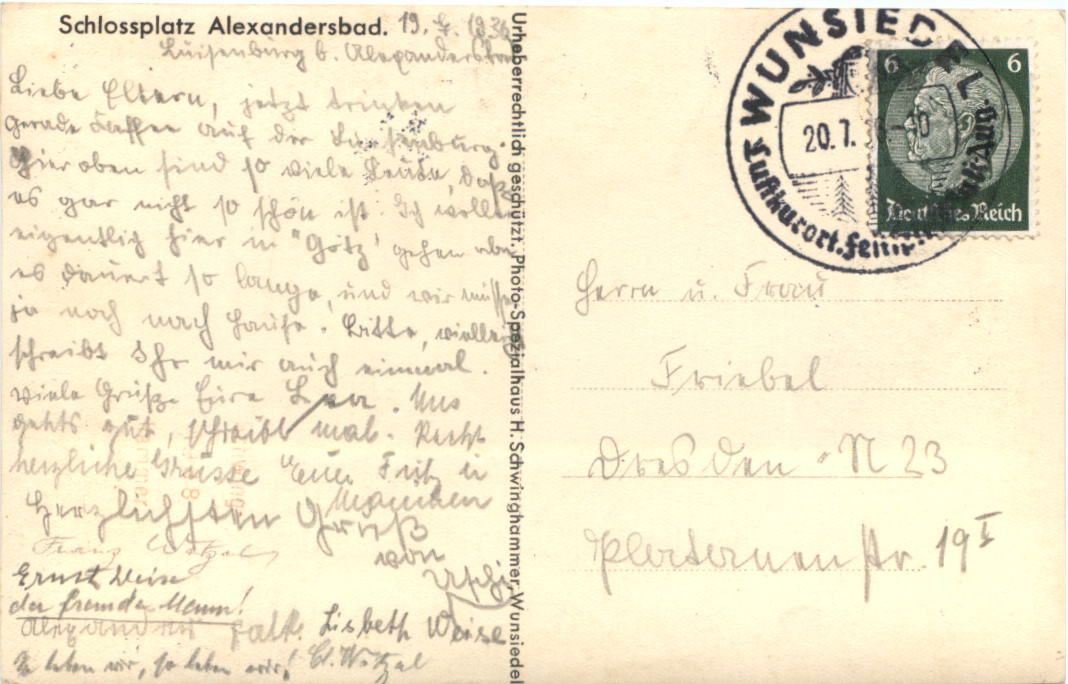 Schlossplatz Alexandersbad. 19. 7. 1936
Luisenburg b. Alexandersbad
Liebe Eltern, jetzt trinken
gerade Kaffee auf der Luisenburg.
Hier oben sind so viele Leute, daß
es gar nicht so schön ist. Ich wollte
eigentlich hier in "Götz" gehen aber
es dauert so lange, und wir müssen
ja noch nach Hause. Bitte, vielleicht
schreibt Ihr mir auch einmal.
Viele Grüße Eure Uns
gehts gut, schreibt mal. Recht
herzliche Grüsse Eure Fritz u
Herzlichsten Gruß
von
Uschi
Franz Wetzel
Ernst Weise
der fremde Mann!
Alexander Falk Lisbeth Weise
So leben wir, so leben wir! Wetzel
Urheberrechtlich geschützt. Photo-Spezialhaus H. Schwinghammer, Wunsiedel
WUNSIEDEL
20.7.
Luftkurort. Felsen
6 6
Deutsches Reich
Herrn u. Frau
Friebel
Dresden N 23
Platanenstr. 19 I